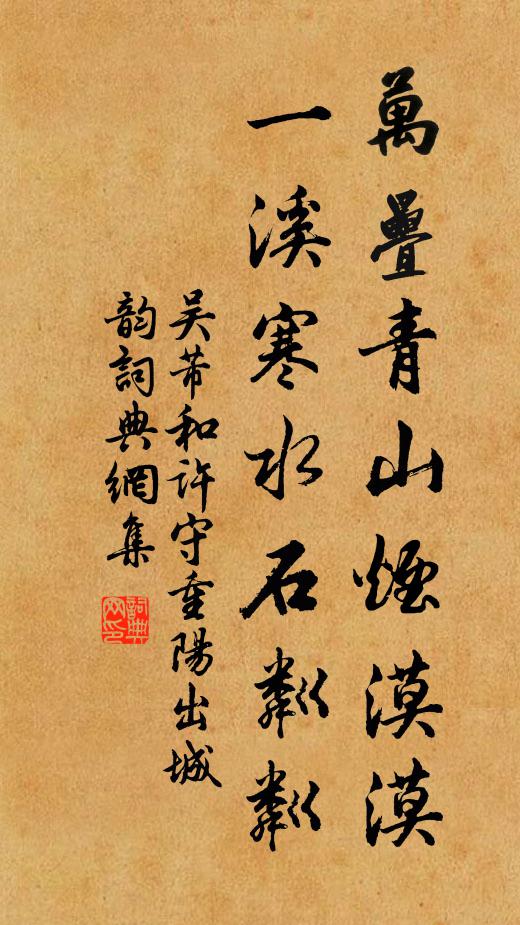 萬疊青山煙漠漠
一溪寒水石粼粼
吴芾和許守重陽出城
韵詞典網集
詞典
网印